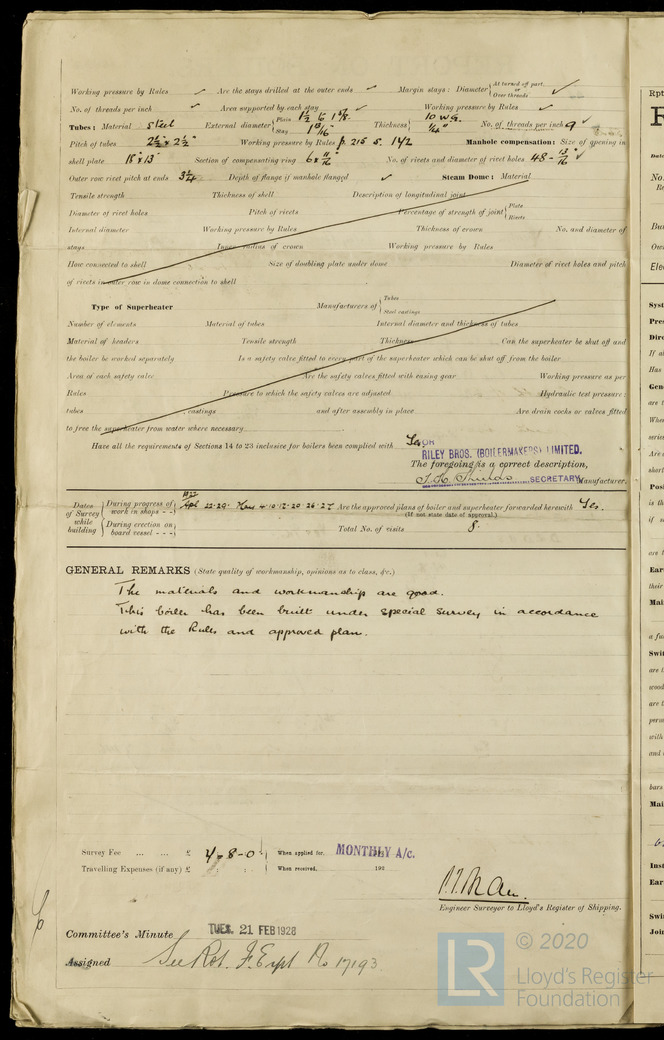 Working pressure by Rules ✓ Are the stays drilled at the outer ends ✓ Margin stays: Diameter { At turned off part, or Over threads ✓
No. of threads per inch ✓ Area supported by each stay ✓ Working pressure by Rules ✓
Tubes: Material Steel External diameter { Plain 1½ & 1⅝ Stay 1 13/16" Thickness { 10 W.G. ¼" No. of threads per inch 9 ✓
Pitch of tubes 2½ x 2½" Working pressure by Rules p. 215 s. 142 Manhole compensation: Size of opening in
shell plate 18 x 13" Section of compensating ring 6 x 11/16" No. of rivets and diameter of rivet holes 48 - 13/16" ✓
Outer row rivet pitch at ends 3¼ Depth of flange if manhole flanged ✓ Steam Dome: Material
Tensile strength Thickness of shell Description of longitudinal joint
Diameter of rivet holes Pitch of rivets Percentage of strength of joint { Plate Rivets
Internal diameter Working pressure by Rules Thickness of crown No. and diameter of
stays Inner radius of crown Working pressure by Rules
How connected to shell Size of doubling plate under dome Diameter of rivet holes and pitch
of rivets in outer row in dome connection to shell
Type of Superheater Manufacturers of { Tubes Steel castings
Number of elements Material of tubes Internal diameter and thickness of tubes
Material of headers Tensile strength Thickness Can the superheater be shut off and
the boiler be worked separately Is a safety valve fitted to every part of the superheater which can be shut off from the boiler
Area of each safety valve Are the safety valves fitted with easing gear Working pressure as per
Rules Pressure to which the safety valves are adjusted Hydraulic test pressure:
tubes castings and after assembly in place Are drain cocks or valves fitted
to free the superheater from water where necessary
Have all the requirements of Sections 14 to 23 inclusive for boilers been complied with Yes
FOR
RILEY BROS. (BOILERMAKERS) LIMITED.
The foregoing is a correct description,
SECRETARY Manufacturer.
Dates of Survey while building { During progress of work in shops - - 1927 Apl 22.29. June 4.10.12.20.26.27 Are the approved plans of boiler and superheater forwarded herewith Yes.
(If not state date of approval.)
During erection on board vessel - - - Total No. of visits 8.
GENERAL REMARKS (State quality of workmanship, opinions as to class, &c.)
The materials and workmanship are good.
This boiler has been built under special survey in accordance
with the Rules and approved plan.
Survey Fee ... ... £ 4 - 8 - 0 : When applied for, MONTHLY A/c.
Travelling Expenses (if any) £ : : When received, 192
Engineer Surveyor to Lloyd's Register of Shipping.
Committee's Minute TUES. 21 FEB 1928
Assigned See Rot. F.E. rpt No 17193
© 2020
LR Lloyd's Register
Foundation